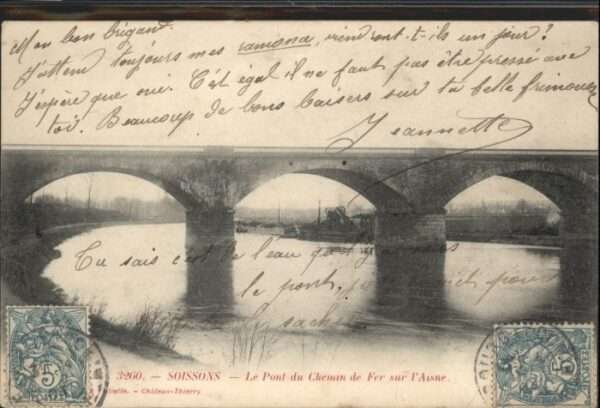 Mon bon brigand.
J'attend toujours mes ramona, viendront-t-ils un jour?
J'espère que oui. C'est égal il ne faut pas être pressé avec
toi. Beaucoup de bons baisers sur ta belle frimousse
Jeannette
Tu sais c'est de l'eau qui
le pont,
sache
3260. - SOISSONS - Le Pont du Chemin de Fer sur l'Aisne.
- Château-Thierry
5
5